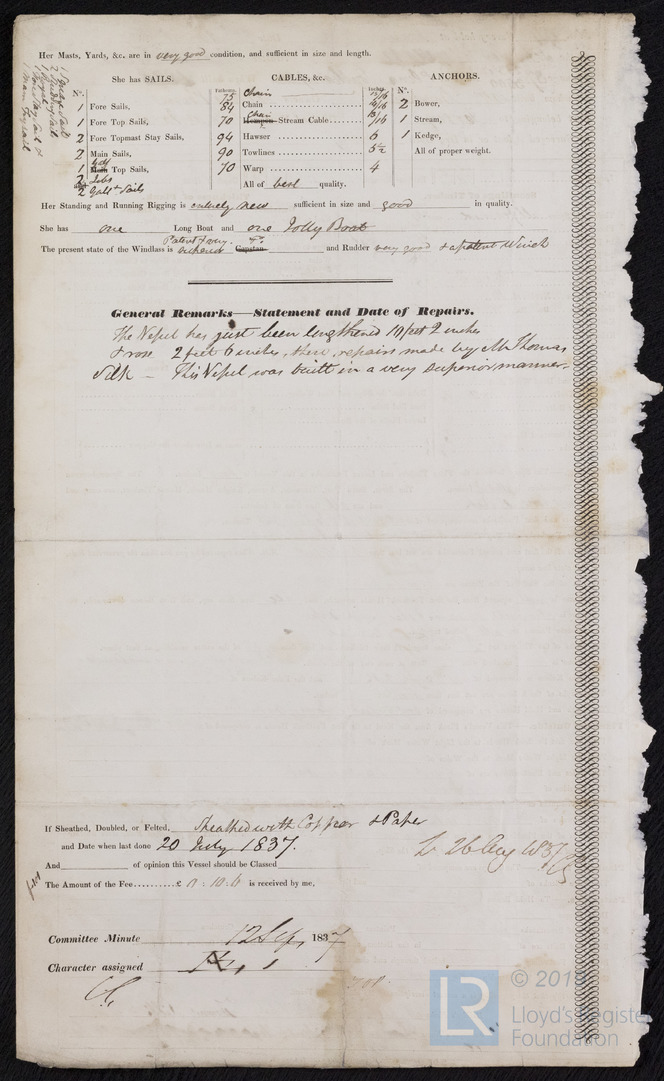 Her Masts, Yards, &c. are in very good condition, and sufficient in size and length.
She has SAILS.
CABLES, &c.
ANCHORS.
N°.
Fathoms.
Inches.
N°.
1 Fore Sails,
1 Fore Top Sails,
2 Fore Topmast Stay Sails,
2 Main Sails,
1 Main Gaff Top Sails,
2 Jibs
2 Gaff Sails
1 Square Sail
Chain
75
Chain 84
Hempen Chain Stream Cable 70
Hawser 94 6
Towlines 90 5½
Warp 70 4
All of best quality.
2 Bower,
1 Stream,
1 Kedge,
All of proper weight.
Her Standing and Running Rigging is entirely new sufficient in size and good in quality.
She has one Long Boat and one Jolly Boat
Patent & very
The present state of the Windlass is Capstan and Rudder very good & a patent Winch
General Remarks—Statement and Date of Repairs.
The Vessel has just been lengthened 10 feet 2 inches
& rose 2 feet 6 inches, these repairs made by Mr Thomas
Silk — This Vessel was built in a very superior manner.
If Sheathed, Doubled, or Felted, Sheathed with Copper & Paper
and Date when last done 20 July 1837.
26 Aug 1837
And of opinion this Vessel should be Classed
The Amount of the Fee.......... £ 0 : 10 : 6 is received by me,
Committee Minute 12 Sep, 1837
Character assigned
LR
© 2019
Lloyd's Register
Foundation